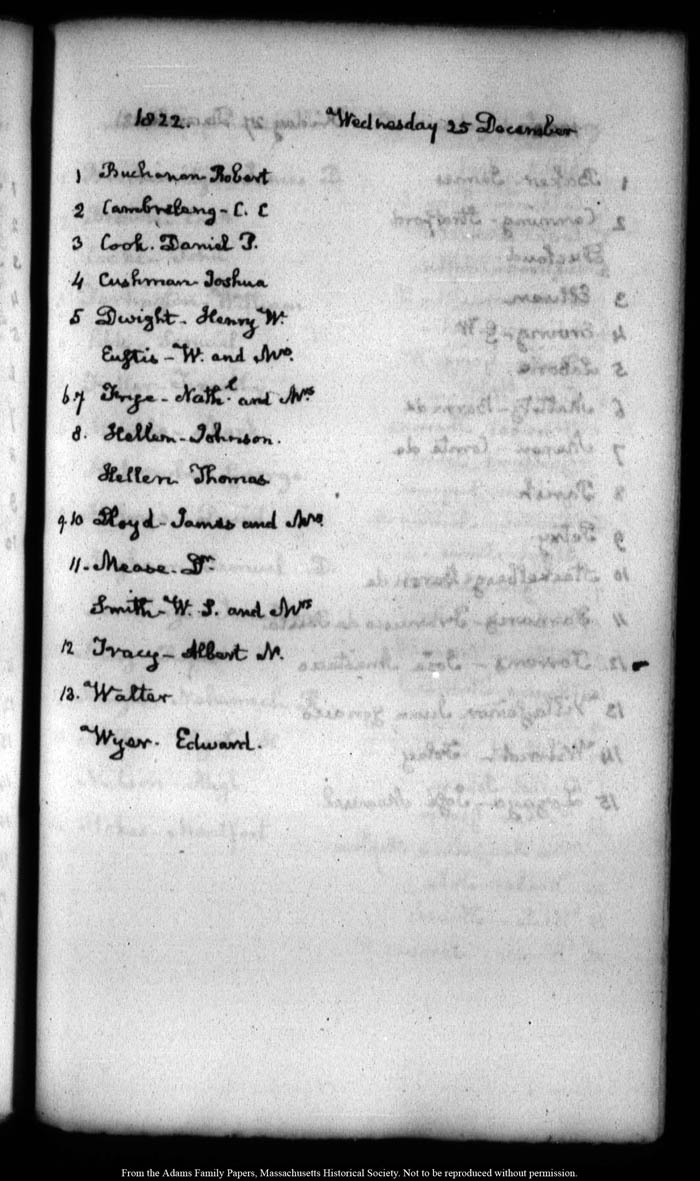 1822. Wednesday 25 December
1 Buchanan Robert
2 Cambreleng - C. C
3 Cook. Daniel P.
4 Cushman Joshua
5 Dwight - Henry W.
Eustis - W. and Mrs.
6 7 Frye - Nathl. and Mrs
8. Hellen - Johnson.
Hellen Thomas
9. 10 Lloyd - James and Mrs.
11 - Mease - Dr.
Smith - W. S. and Mrs
12 Tracy - Albert H.
13. Walter
Wyer. Edward.
From the Adams Family Papers, Massachusetts Historical Society. Not to be reproduced without permission.